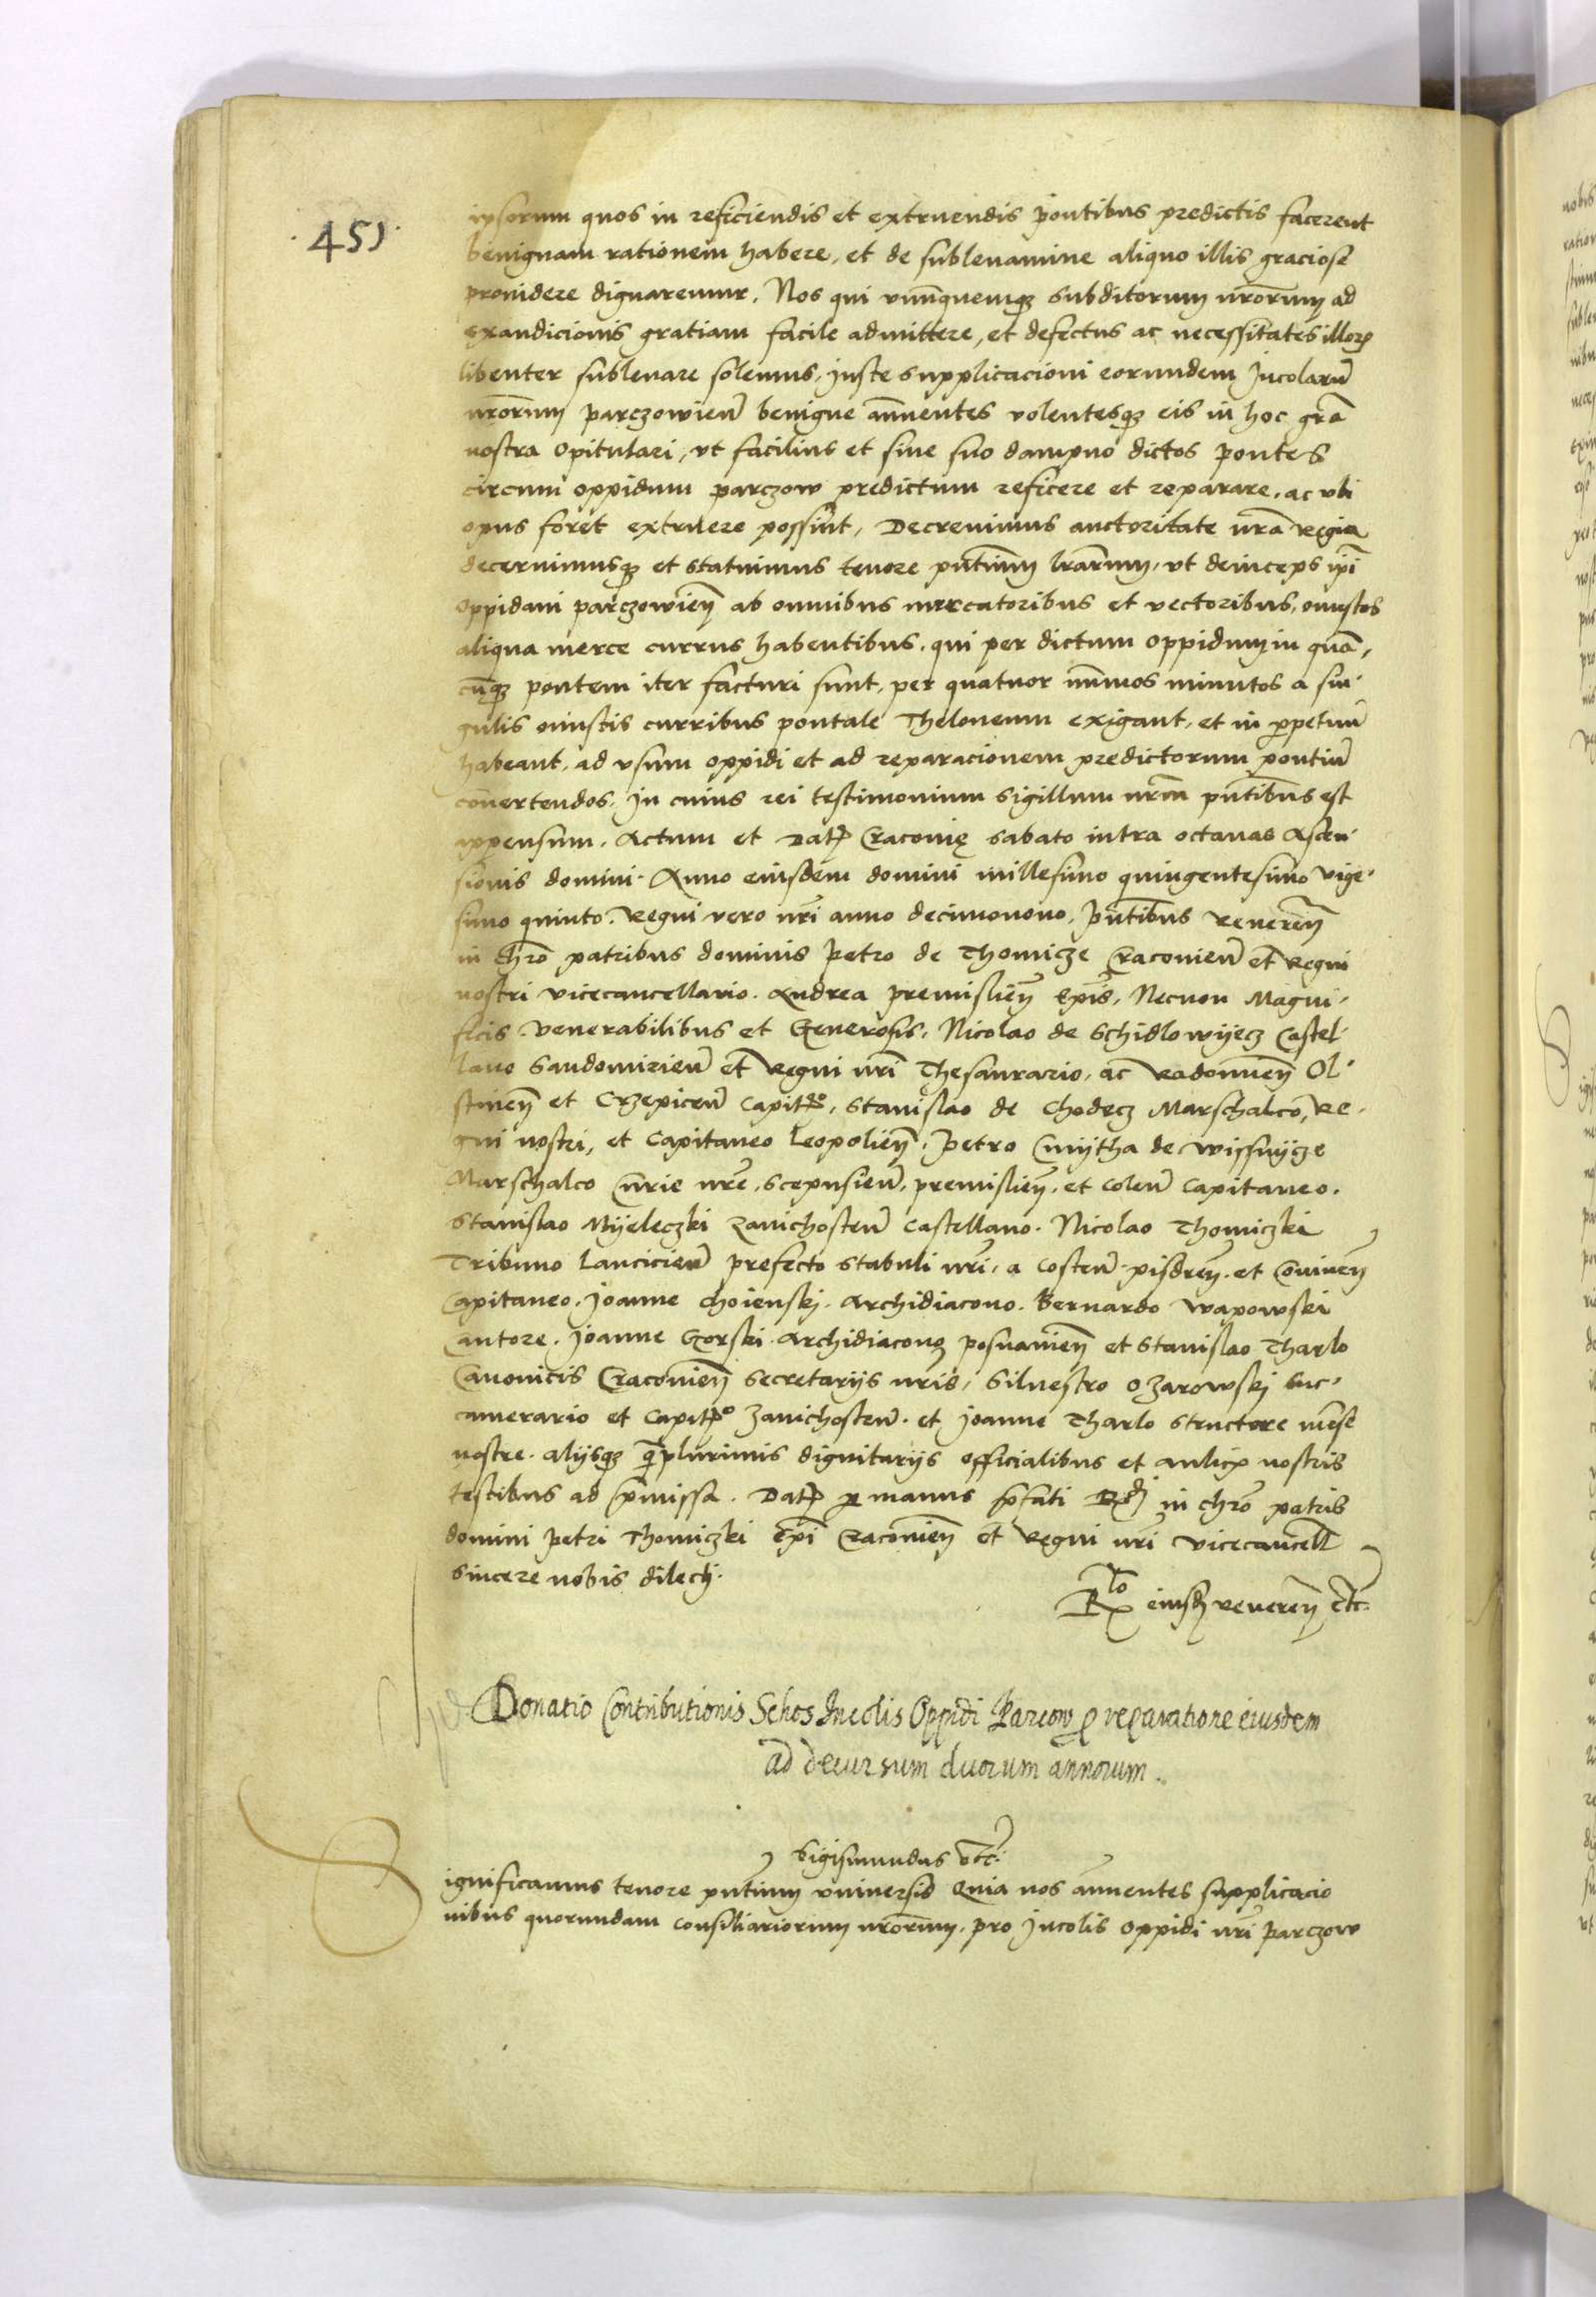 451
ipsorum quos in reficiendis et extruendis pontibus predictis facerent
benignam rationem habere, et de sublenamine aliquo illis graciose
prouidere dignaremur. Nos qui vnũquemqꝫ subditorum nrõrum ad
exaudicionis gratiam facile admittere, et defectus ac necessitates illorꝝ
libenter subleuare solemus, juste supplicacioni eorundem Incolarũ
nrõrum parczowień benigne ãnuentes volentesqꝫ eis in hoc grã
nostra opitulari, vt facilius et sine suo dampno dictos pontes
circum oppidum parczow predictum reficere et reparare, ac vbi
opus foret extruere possint, Decreuimus auctoritate nrã regia
decernimusqꝫ et statuimus tenore pñtium lrãrum, vt deinceps ipĩ
oppidani parczowień ab omnibus mercatoribus et vectoribus, onustos
aliqua merce currus habentibus, qui per dictum oppidum in quã,
cũqꝫ pontem iter facturi sunt, per quatuor nũmos minutos a sin-
gulis onustis curribus pontale Theloneum exigant, et in ꝑpetuũ
habeant, ad vsum oppidi et ad reparacionem predictorum pontiũ
conuertendos. In cuius rei testimonium sigillum nrm̃ pñtibus est
appensum. Actum et Datꝭ Cracouię sabato intra octauas Ascen-
sionis domini. Anno eiusdem domini millesimo quingentesimo vige-
simo quinto. Regni vero nrĩ anno decimonono, pñtibus Reuereń
in chrõ patribus dominis Petro de Thomicze Cracouień et Regni
nostri vicecancellario. Andrea premislień Epĩs, Necnon Magni-
ficis venerabilibus et Generosis, Nicolao de Schidlowyecz Castel-
lano Sandomirień et Regni nrĩ Thesaurario, ac Radomień Ol-
stineń et Crzepiceń Capitꝭo, Stanislao de Chodecz Marschalco, Re-
gni nostri, et Capitaneo Leopolień, Petro Cmytha de Wissnycze
Marschalco Cũrie nrẽ, Scepusień, premislień, et Coleń Capitaneo.
Stanislao Myeleczki Zauichosteń Castellano. Nicolao Thomiczki
Tribuno Lancicień prefecto stabuli nrĩ, a Costeń pisdreń. et Conineń
Capitaneo. Joanne Choienski. Archidiacono. Bernardo Wapowski
Cantore. Joanne Gorski. Archidiacono posnanień et Stanislao Tharlo
Canonicis Cracouień Secretarijs nrĩs, Siluestro Ozarowski suc-
camerario et Capitꝭo Zauichosteń. et Joanne Tharlo structore mẽse
nostre. alijsqꝫ q̃plurimis dignitarijs officialibus et aulicꝭ nostris
testibus ad p̃missa. Datꝭ ꝑ manus p̃fati Rdĩ in chrõ patris
domini Petri Thomiczki Epĩ Cracouień et Regni nrĩ vicecancell
sincere nobis dilecti.
Rlõ eiusdꝫ reuereń etc.
Donatio Contributionis Schos Incolis Oppidi Parcow ꝓ reparatione eiusdem
ad decursum duorum annorum.
Sigismundus etc.
Significamus tenore pñtium vniuersis Quia nos ãnuentes supplicacio
nibus quorundam consiliariorum nrõrum, pro Incolis oppidi nrĩ Parczow